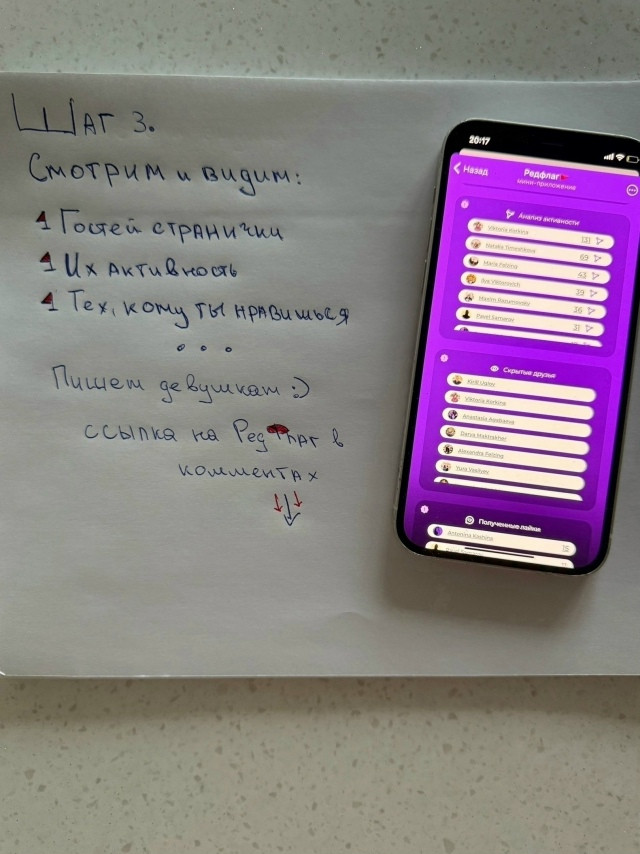 Шаг 3.
Смотрим и видим:
1 Гостей странички
1 Их активность
1 Тех, кому ты нравишься
...
Пишем девушкам :)
ссылка на Редфлаг в
комментах
20:17
Назад
Редфлаг
мини-приложение
Анализ активности
Viktoria Korkina 131
Natalia Timeshkova 69
Maria Felzing 43
Ilya Viktorovich 39
Maxim Razumovsky 36
Pavel 31
Скрытые друзья
Kirill Ustor
Viktoria Korkina
Anastasia
Darya
Alexandra Felzing
Yura Vasilyev
Полученные лайки
Antonina Korkina 15